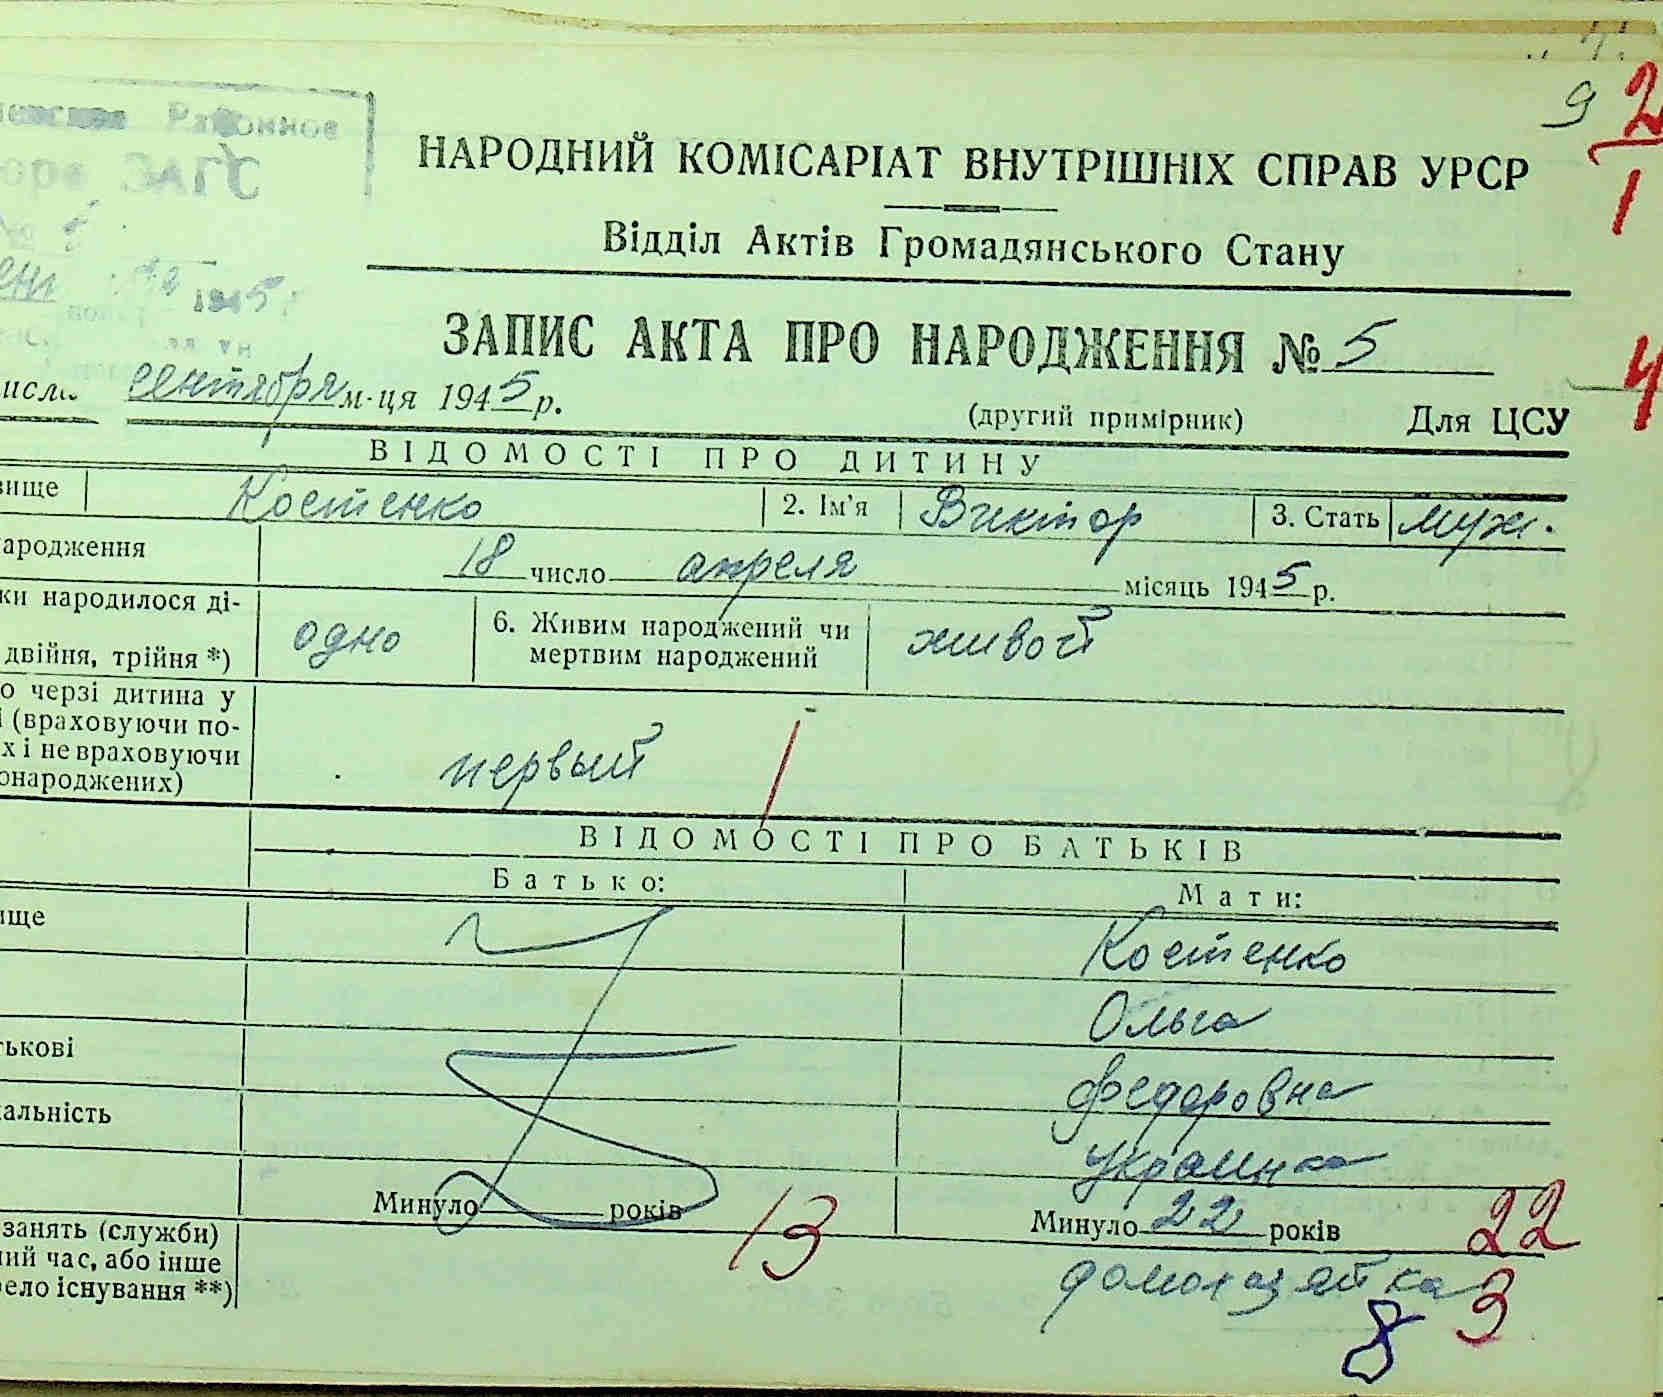 9 2
1
Районное
ЗАГС
НАРОДНИЙ КОМІСАРІАТ ВНУТРІШНІХ СПРАВ УРСР
Відділ Актів Громадянського Стану
1945
ЗАПИС АКТА ПРО НАРОДЖЕННЯ № 5
4
сентября м-ця 1945 р.
(другий примірник) Для ЦСУ
ВІДОМОСТІ ПРО ДИТИНУ
вище Костенко 2. Ім'я Виктор 3. Стать муж.
ародження 18 число апреля місяць 1945 р.
ки народилося ді-
двійня, трійня *) одно 6. Живим народжений чи
мертвим народжений живой
о черзі дитина у
і (враховуючи по-
х і не враховуючи
онароджених) первый 1
ВІДОМОСТІ ПРО БАТЬКІВ
Батько: Мати:
ище Костенко
Ольга
тькові Федоровна
альність Украинка
Минуло років 13 Минуло 22 років 22
занять (служби)
ний час, або інше
ело існування **) домохозяйка 3
8